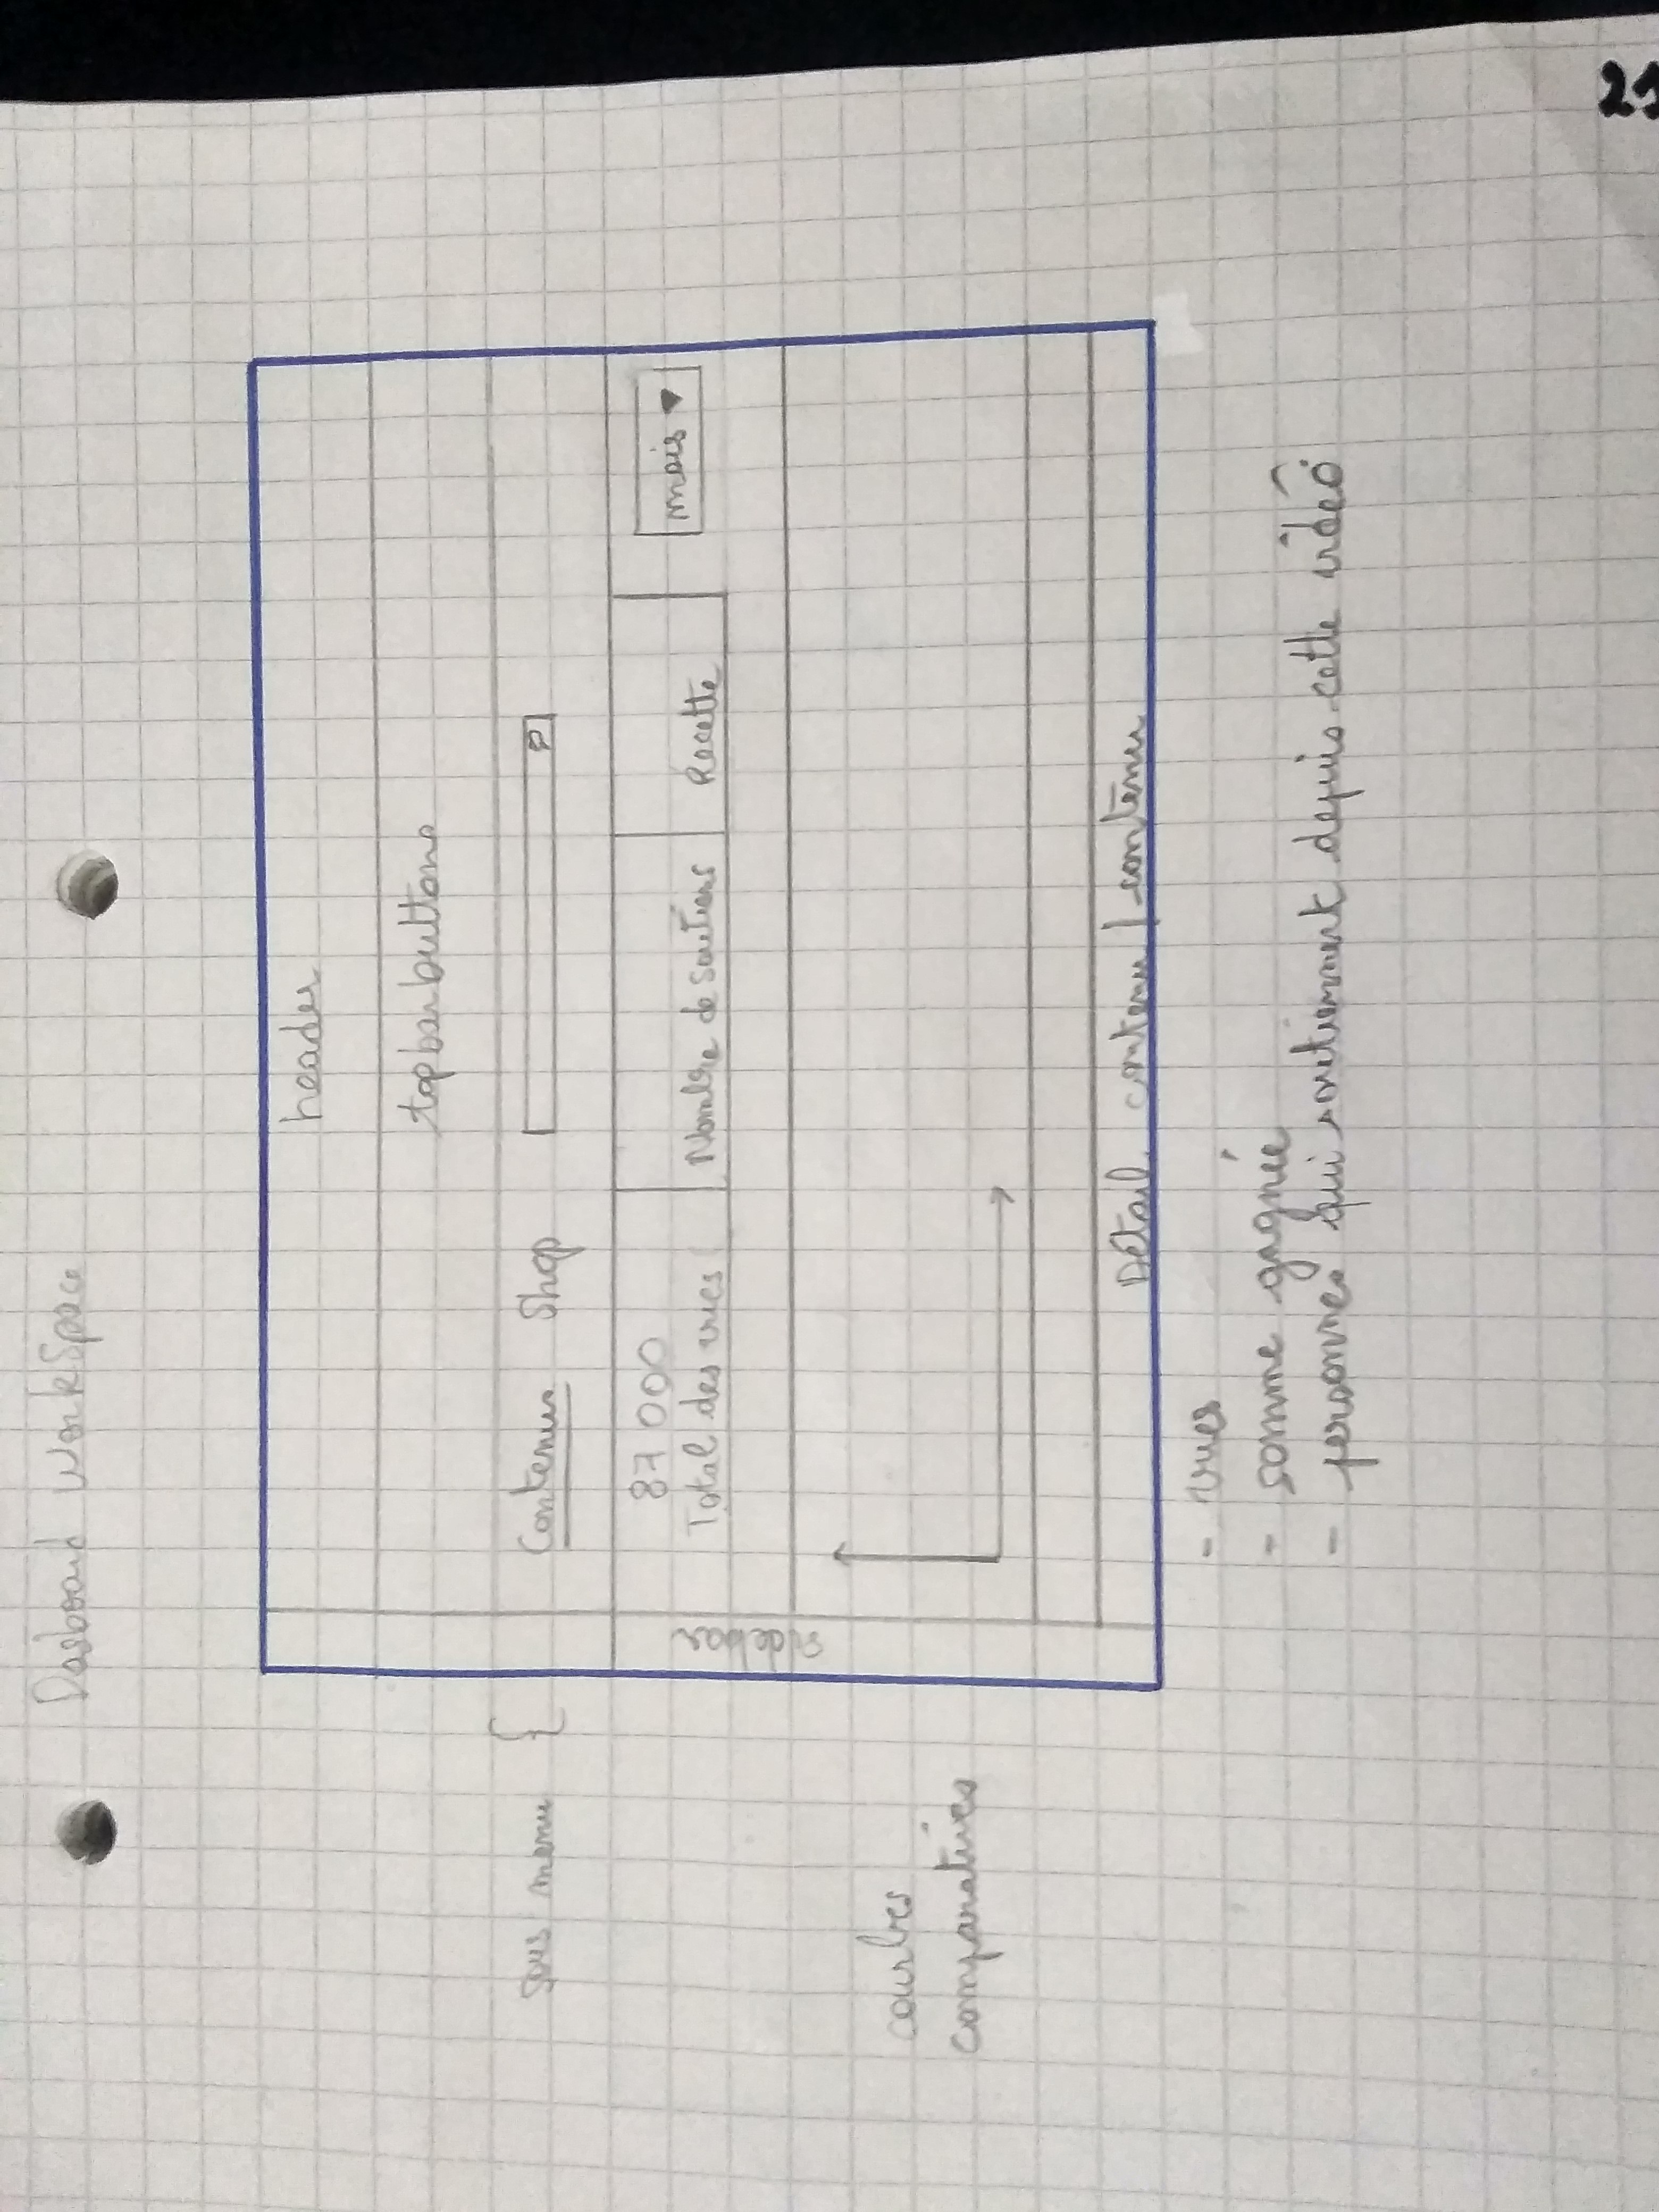 Dasboard WorkSpace
header
topbarbuttons
sous menu
Contenus Shop
87 000
Total des vues
Nombre de soutiens
Recette
mois
sidebar
courbes
comparatives
Détail contenu / contenu
- vues
- somme gagnée
- personnes qui soutiennent depuis cette vidéo